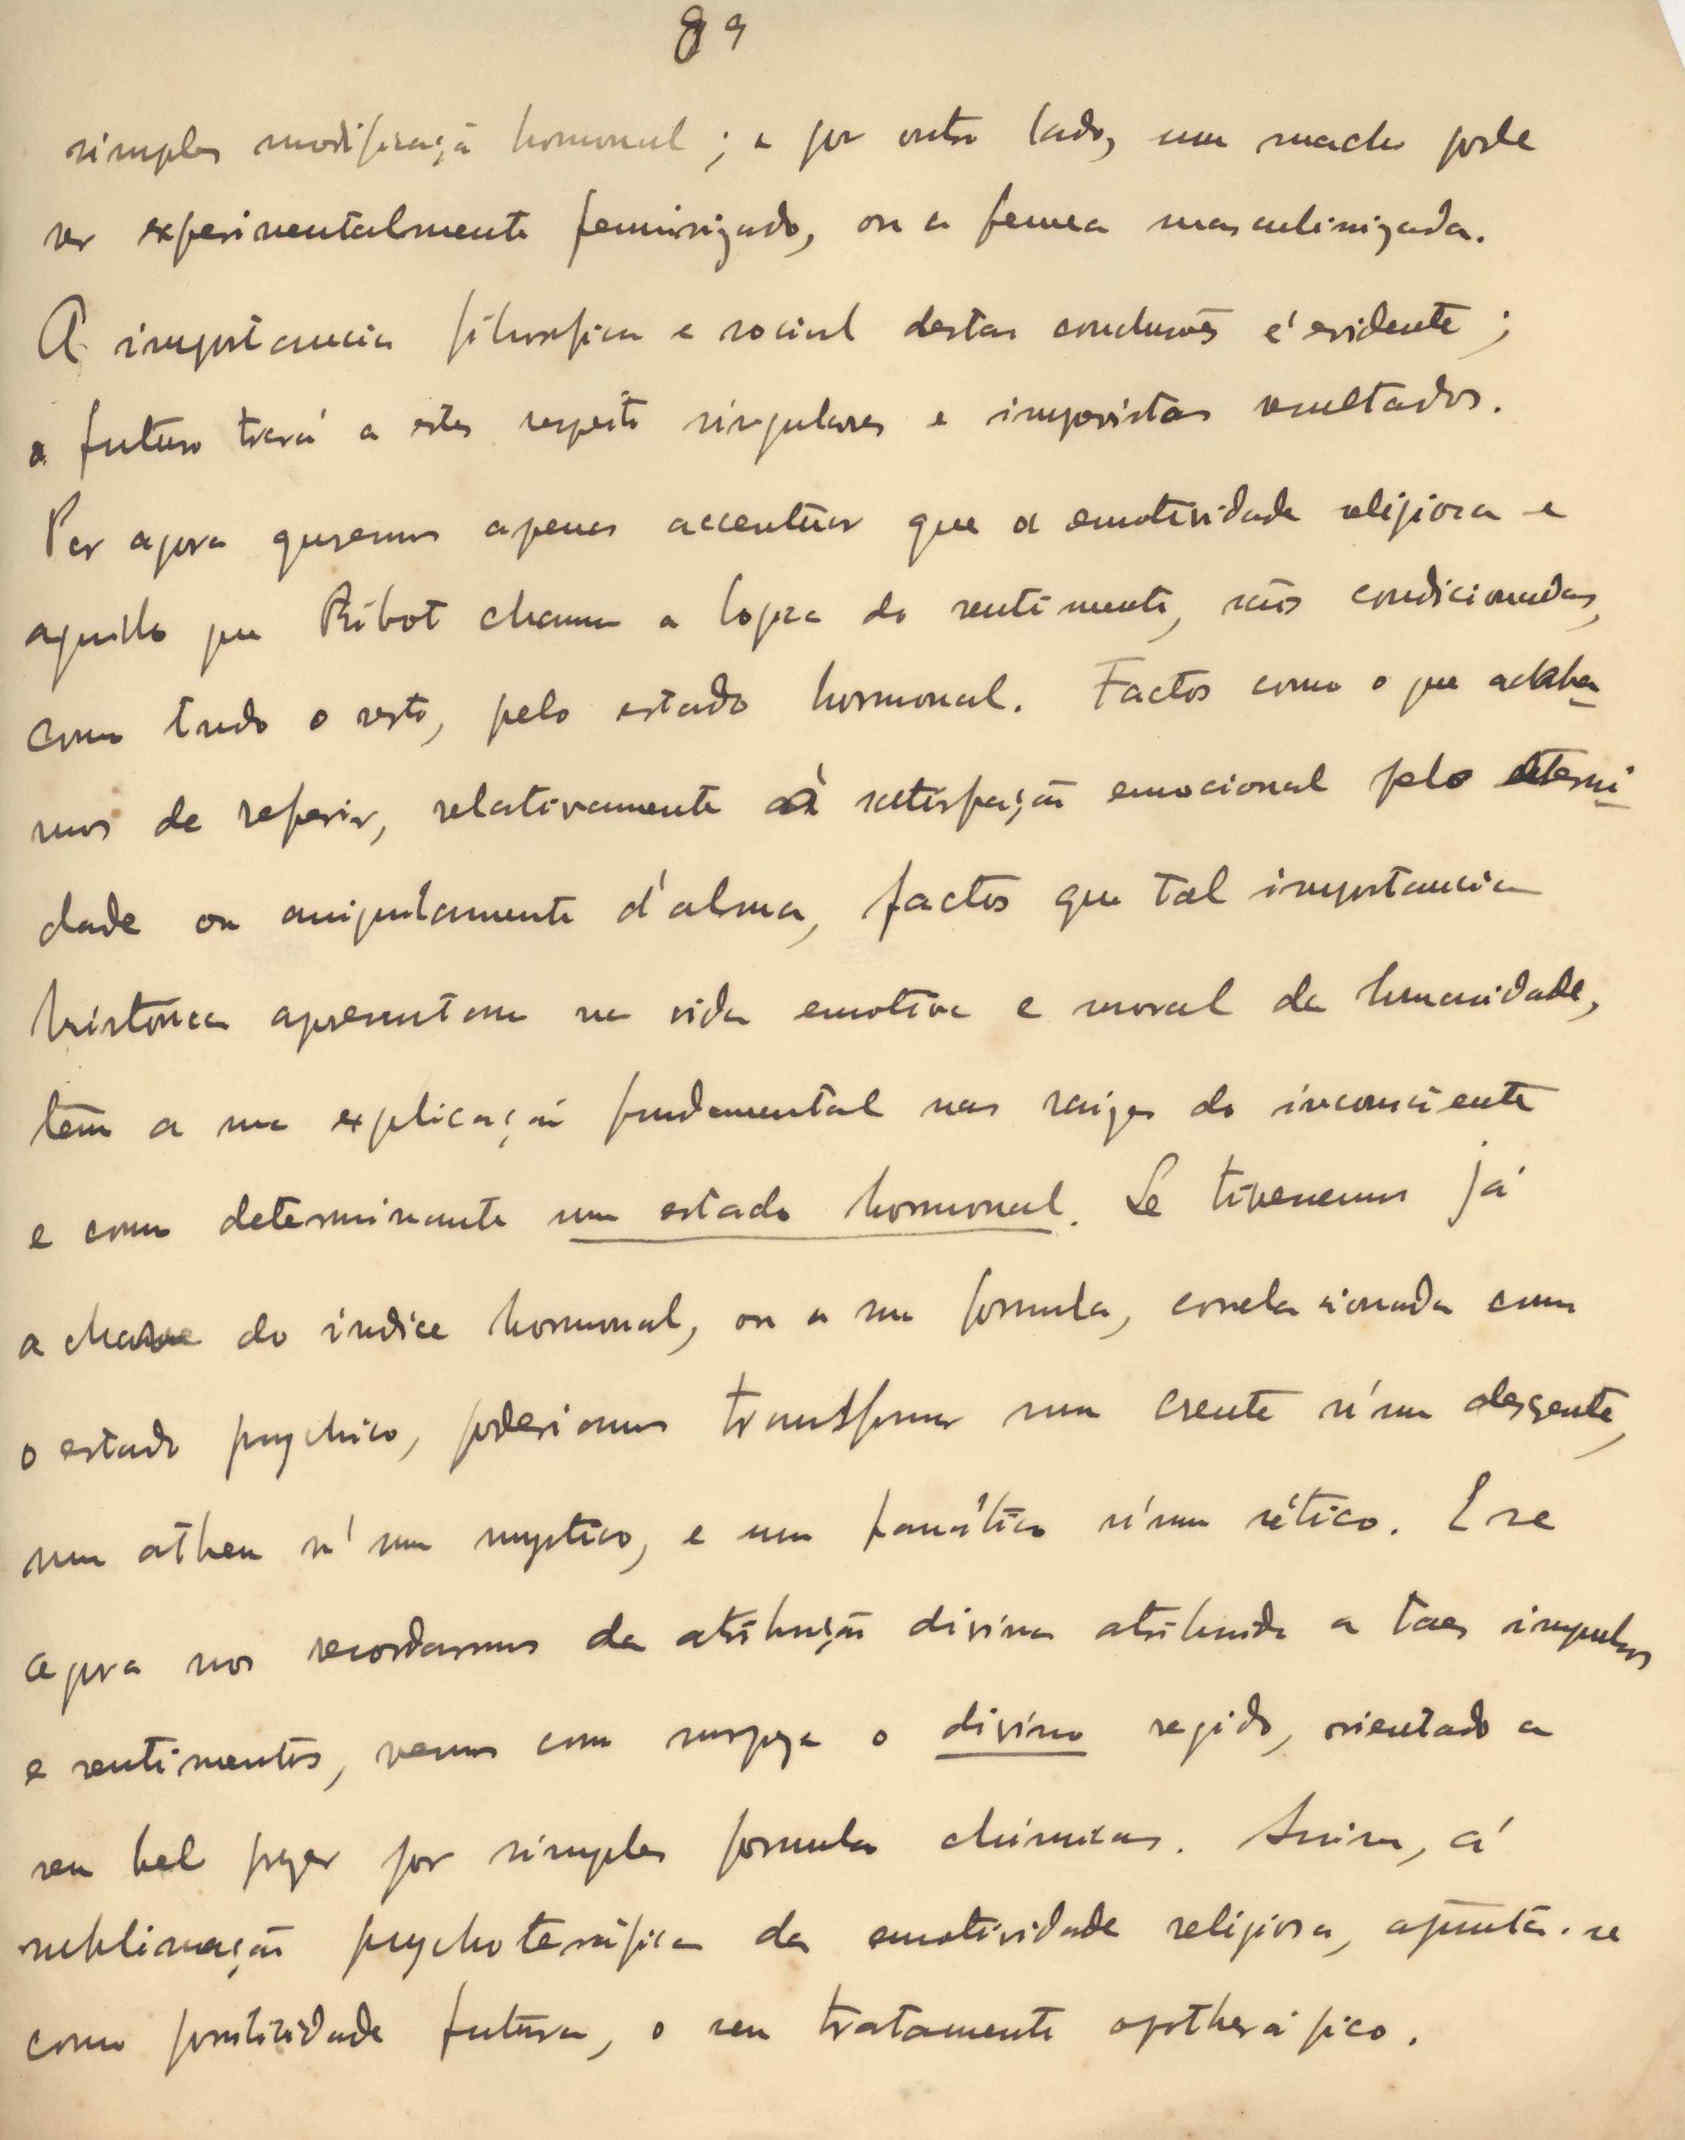 89
simples modificação hormonal; e por outro lado, um macho pode
ser experimentalmente feminizado, ou a femea masculinizada.
A importancia filosofica e social destas conclusões é evidente;
o futuro trará a este respeito singulares e imprevistos resultados.
Por agora queremos apenas accentuar que a emotividade religiosa e
aquillo que Ribot chama a logica do sentimento, são condicionadas,
como tudo o resto, pelo estado hormonal. Factos como o que acaba-
mos de referir, relativamente à satisfação emocional pela eterni-
dade ou aniquilamento d'alma, factos que tal importancia
historica apresentam na vida emotiva e moral da humanidade,
têm a sua explicação fundamental nas raizes do inconsciente
e como determinante um estado hormonal. Se tivessemos já
a chave do indice hormonal, ou a sua formula, correlacionada com
o estado psychico, poderiamos transformar um crente n'um descrente,
um atheu n'um mystico, e um fanático n'um sético. E se
agora nos recordarmos da atribuição divina atribuida a taes impulsos
e sentimentos, vemos com surpreza o divino regido, orientado a
seu bel prazer por simples formulas chimicas. Assim, á
sublimação psychoteráfica da emotividade religiosa, ajunta-se
como possibilidade futura, o seu tratamento opotheráfico.